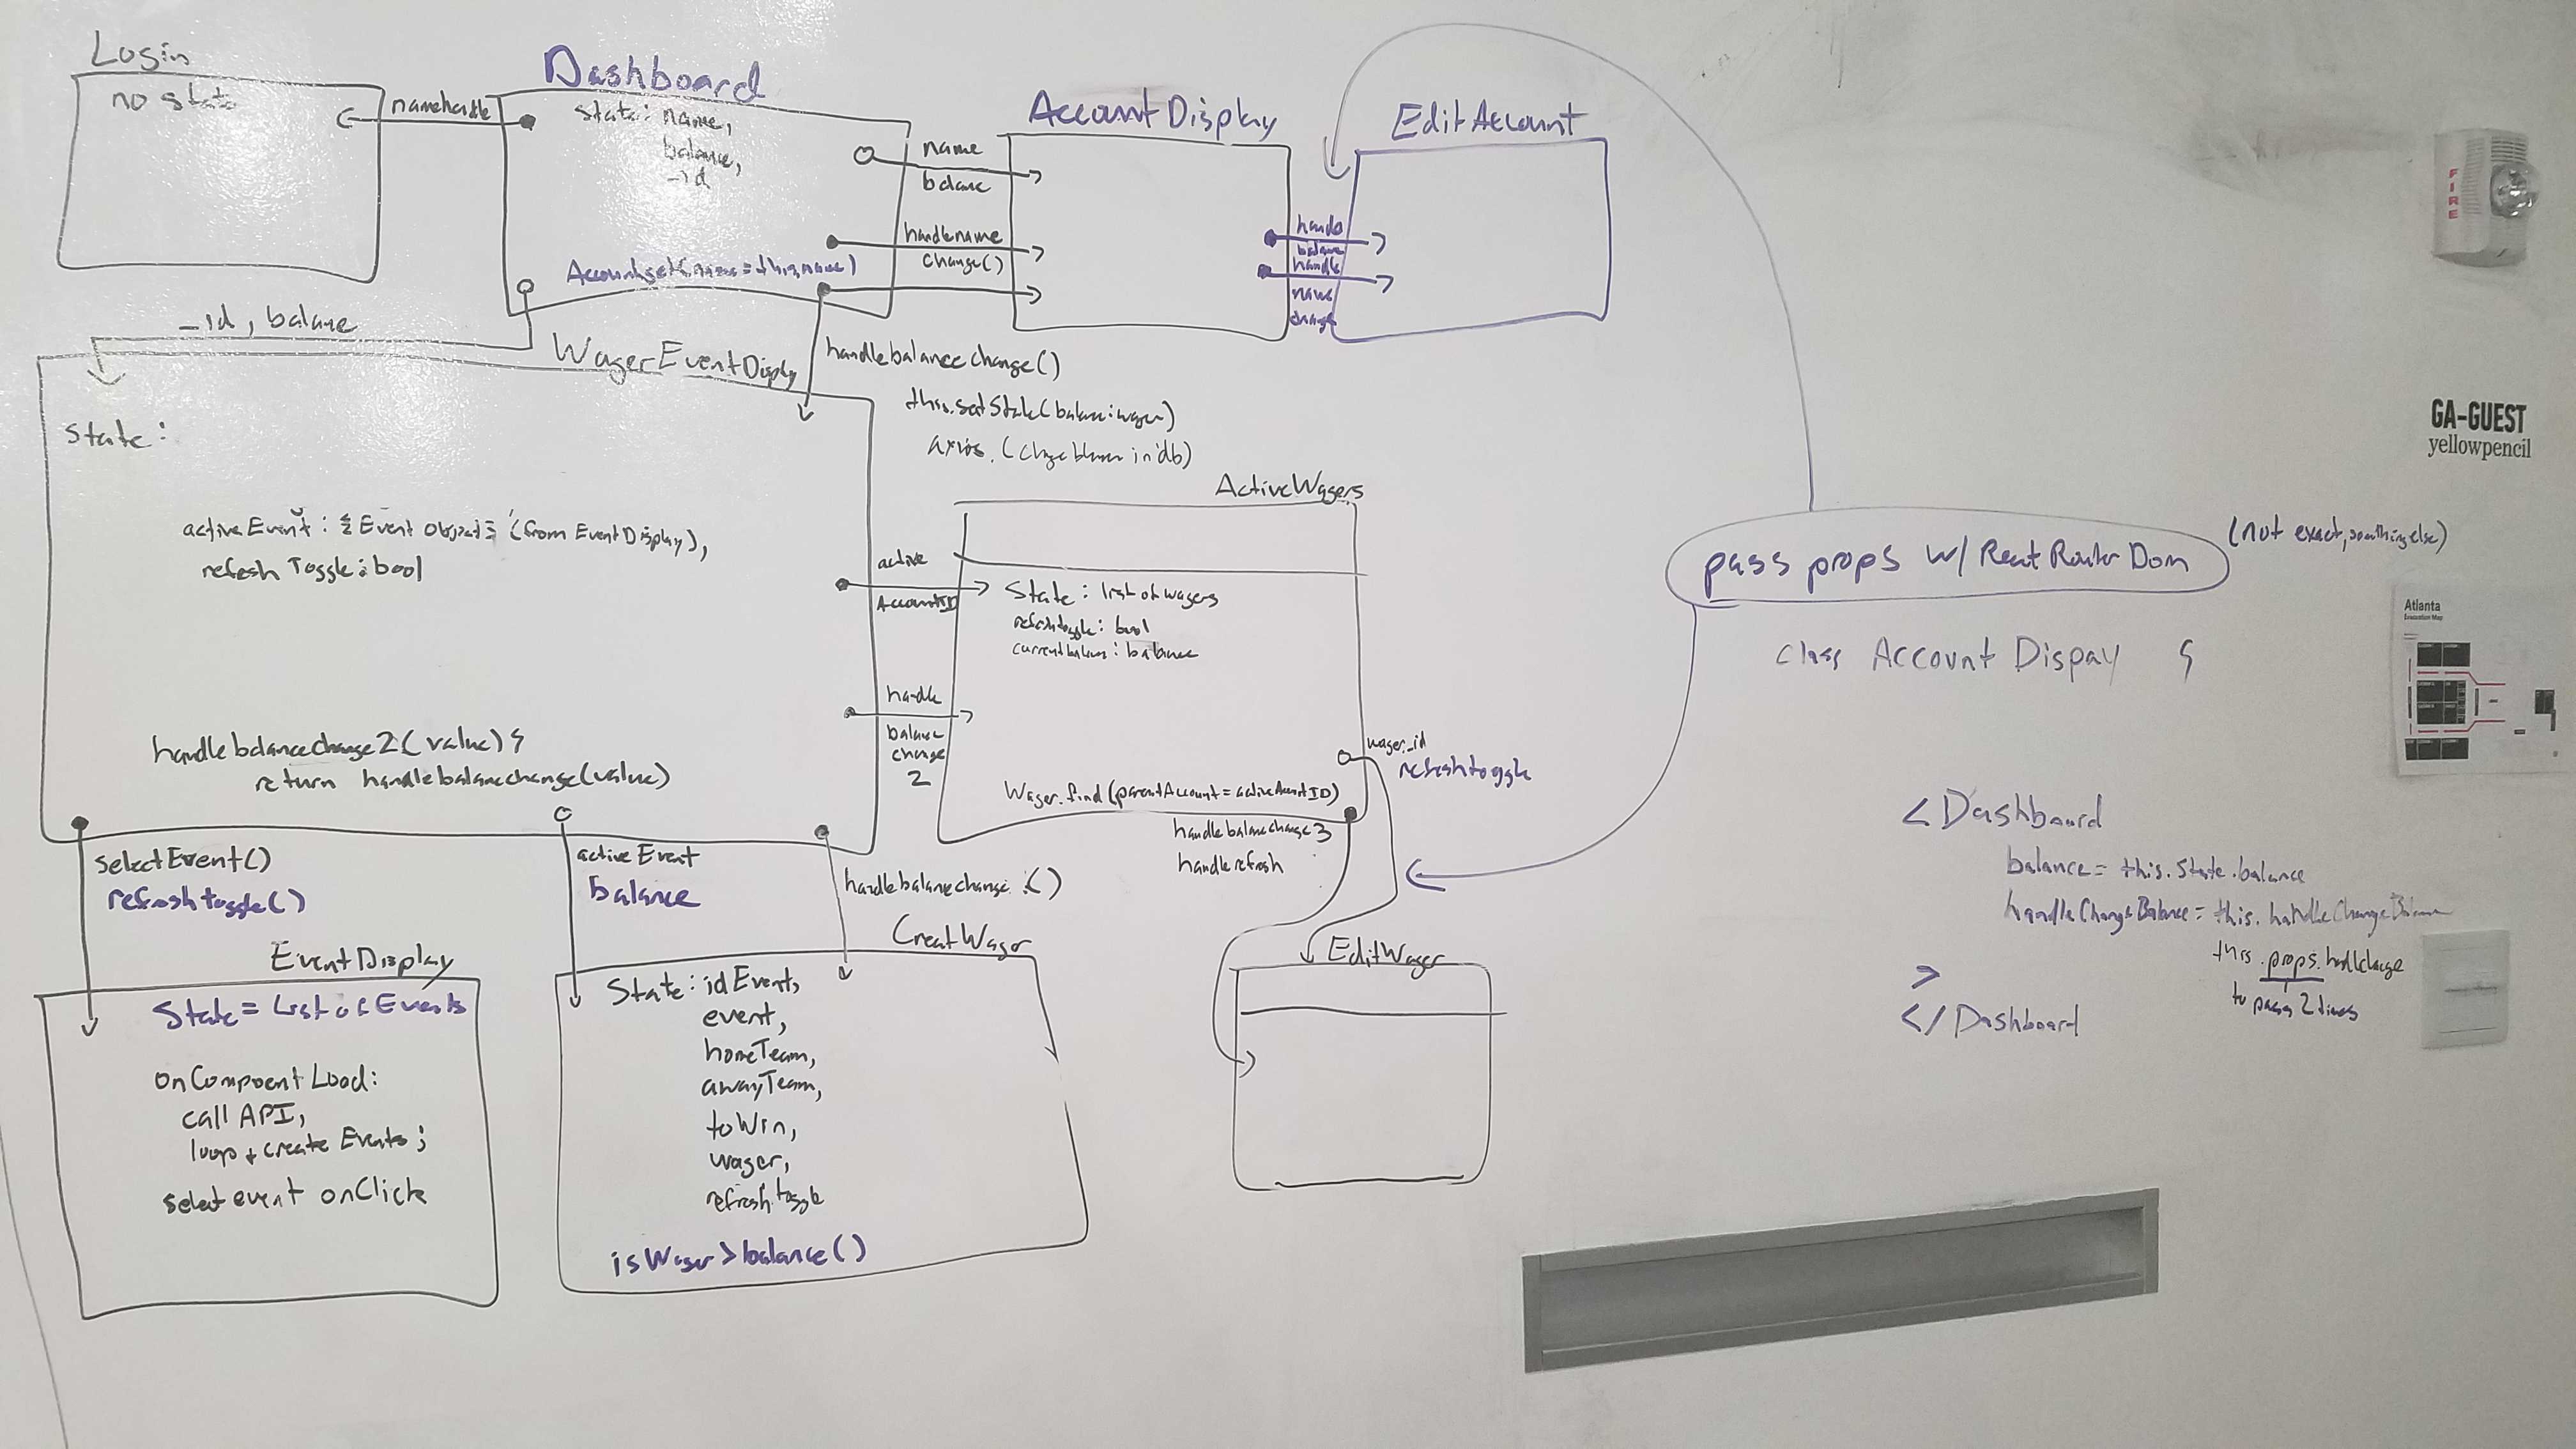 Login
no state
namehandle
Dashboard
state: name,
balance,
_id
Account.get(name=this.name)
name
balance
handlename
change()
AccountDisplay
handle
balance
handle
name
change
EditAccount
_id, balance
WagerEventDisplay
handlebalancechange()
this.setState(balance:wager)
axios.(change balance in db)
State:
activeEvent: {Event Object} (from EventDisplay),
refresh Toggle: bool
handlebalancechange2(value){
return handlebalancechange(value)
active
AccountID
handle
balance
change
2
ActiveWagers
State: list of wagers
refreshtoggle: bool
currentbalance: balance
Wager.find(parentAccount=activeAccountID)
wager_id
refreshtoggle
handlebalancechange3
handlerefresh
selectEvent()
refreshtoggle()
activeEvent
balance
handlebalancechange.()
EventDisplay
State = List of Events
onCompoentLoad:
call API,
loop + create Events;
select event onClick
CreatWager
State: idEvent,
event,
homeTeam,
awayTeam,
toWin,
wager,
refresh.toggle
isWager>balance()
EditWager
pass props w/ReactRouterDom
(not exact, something else)
class AccountDispay {
<Dashboard
balance= this.state.balance
handleChangeBalance= this.handleChangeBalance
this.props.handlchange
to pass 2 times
>
</Dashboard
FIRE
GA-GUEST
yellowpencil
Atlanta
Evacuation Map